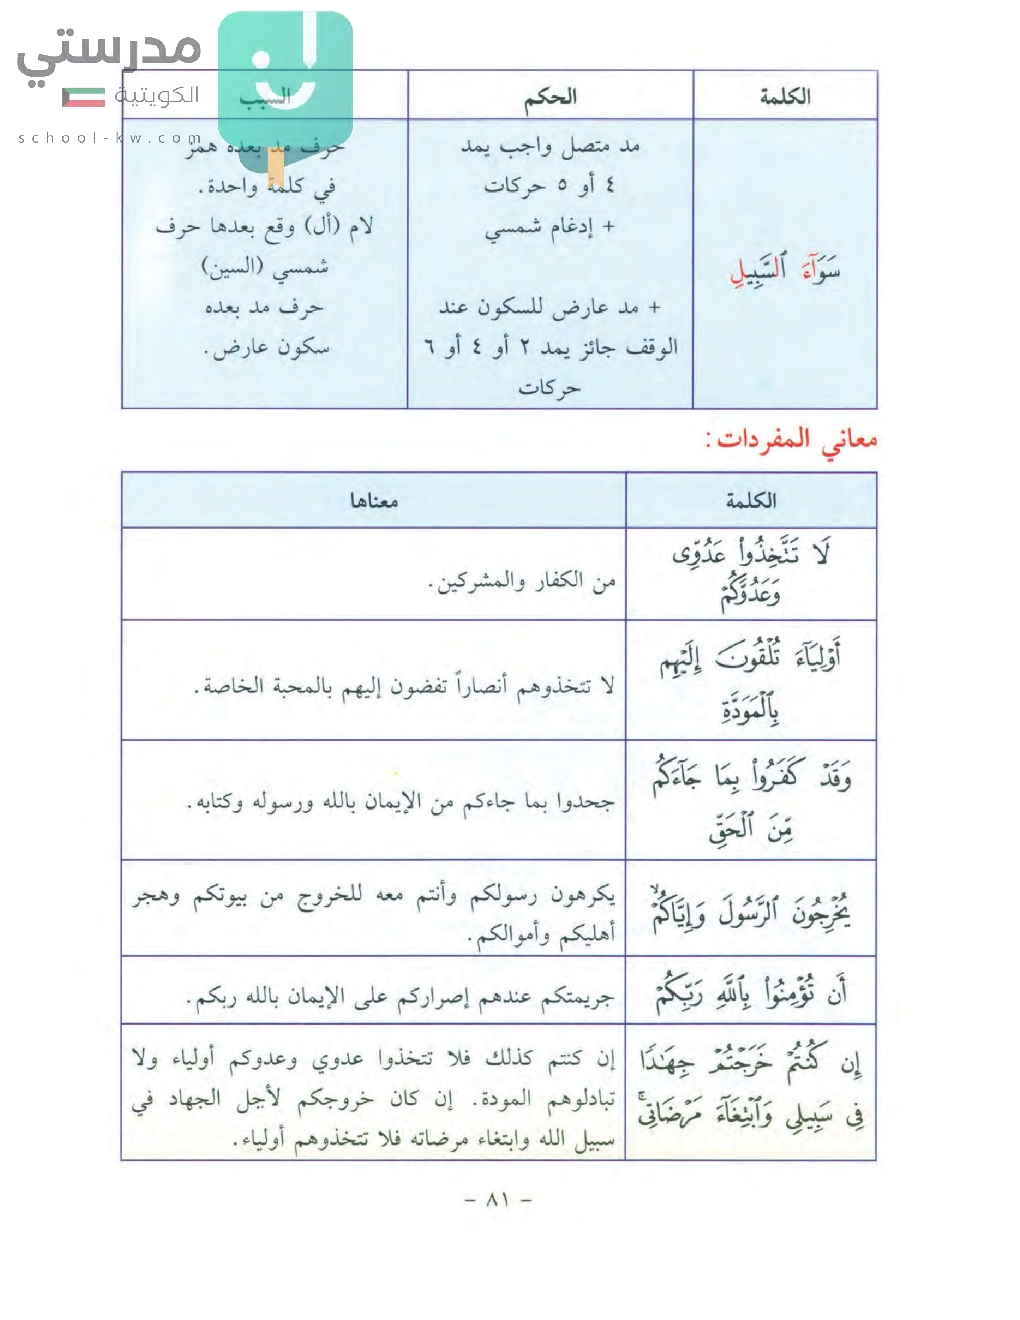 مدرستي
الكويتية
school-kw.com
الكلمة
الحكم
السبب
سَوَآءَ ٱلسَّبِيلِ
مد متصل واجب يمد
٤ أو ٥ حركات
+ إدغام شمسي
+ مد عارض للسكون عند
الوقف جائز يمد ٢ أو ٤ أو ٦
حركات
حرف مد بعده همز
في كلمة واحدة.
لام (أل) وقع بعدها حرف
شمسي (السين)
حرف مد بعده
سكون عارض.
معاني المفردات:
الكلمة
معناها
لَا تَتَّخِذُوا۟ عَدُوِّى
وَعَدُوَّكُمْ
من الكفار والمشركين.
أَوْلِيَآءَ تُلْقُونَ إِلَيْهِم
بِٱلْمَوَدَّةِ
لا تتخذوهم أنصاراً تفضون إليهم بالمحبة الخاصة.
وَقَدْ كَفَرُوا۟ بِمَا جَآءَكُم
مِّنَ ٱلْحَقِّ
جحدوا بما جاءكم من الإيمان بالله ورسوله وكتابه.
يُخْرِجُونَ ٱلرَّسُولَ وَإِيَّاكُمْ ۙ
يكرهون رسولكم وأنتم معه للخروج من بيوتكم وهجر
أهليكم وأموالكم.
أَن تُؤْمِنُوا۟ بِٱللَّهِ رَبِّكُمْ
جريمتكم عندهم إصراركم على الإيمان بالله ربكم.
إِن كُنتُمْ خَرَجْتُمْ جِهَٰدًا
فِى سَبِيلِى وَٱبْتِغَآءَ مَرْضَاتِى ۚ
إن كنتم كذلك فلا تتخذوا عدوي وعدوكم أولياء ولا
تبادلوهم المودة. إن كان خروجكم لأجل الجهاد في
سبيل الله وابتغاء مرضاته فلا تتخذوهم أولياء.
- ٨١ -